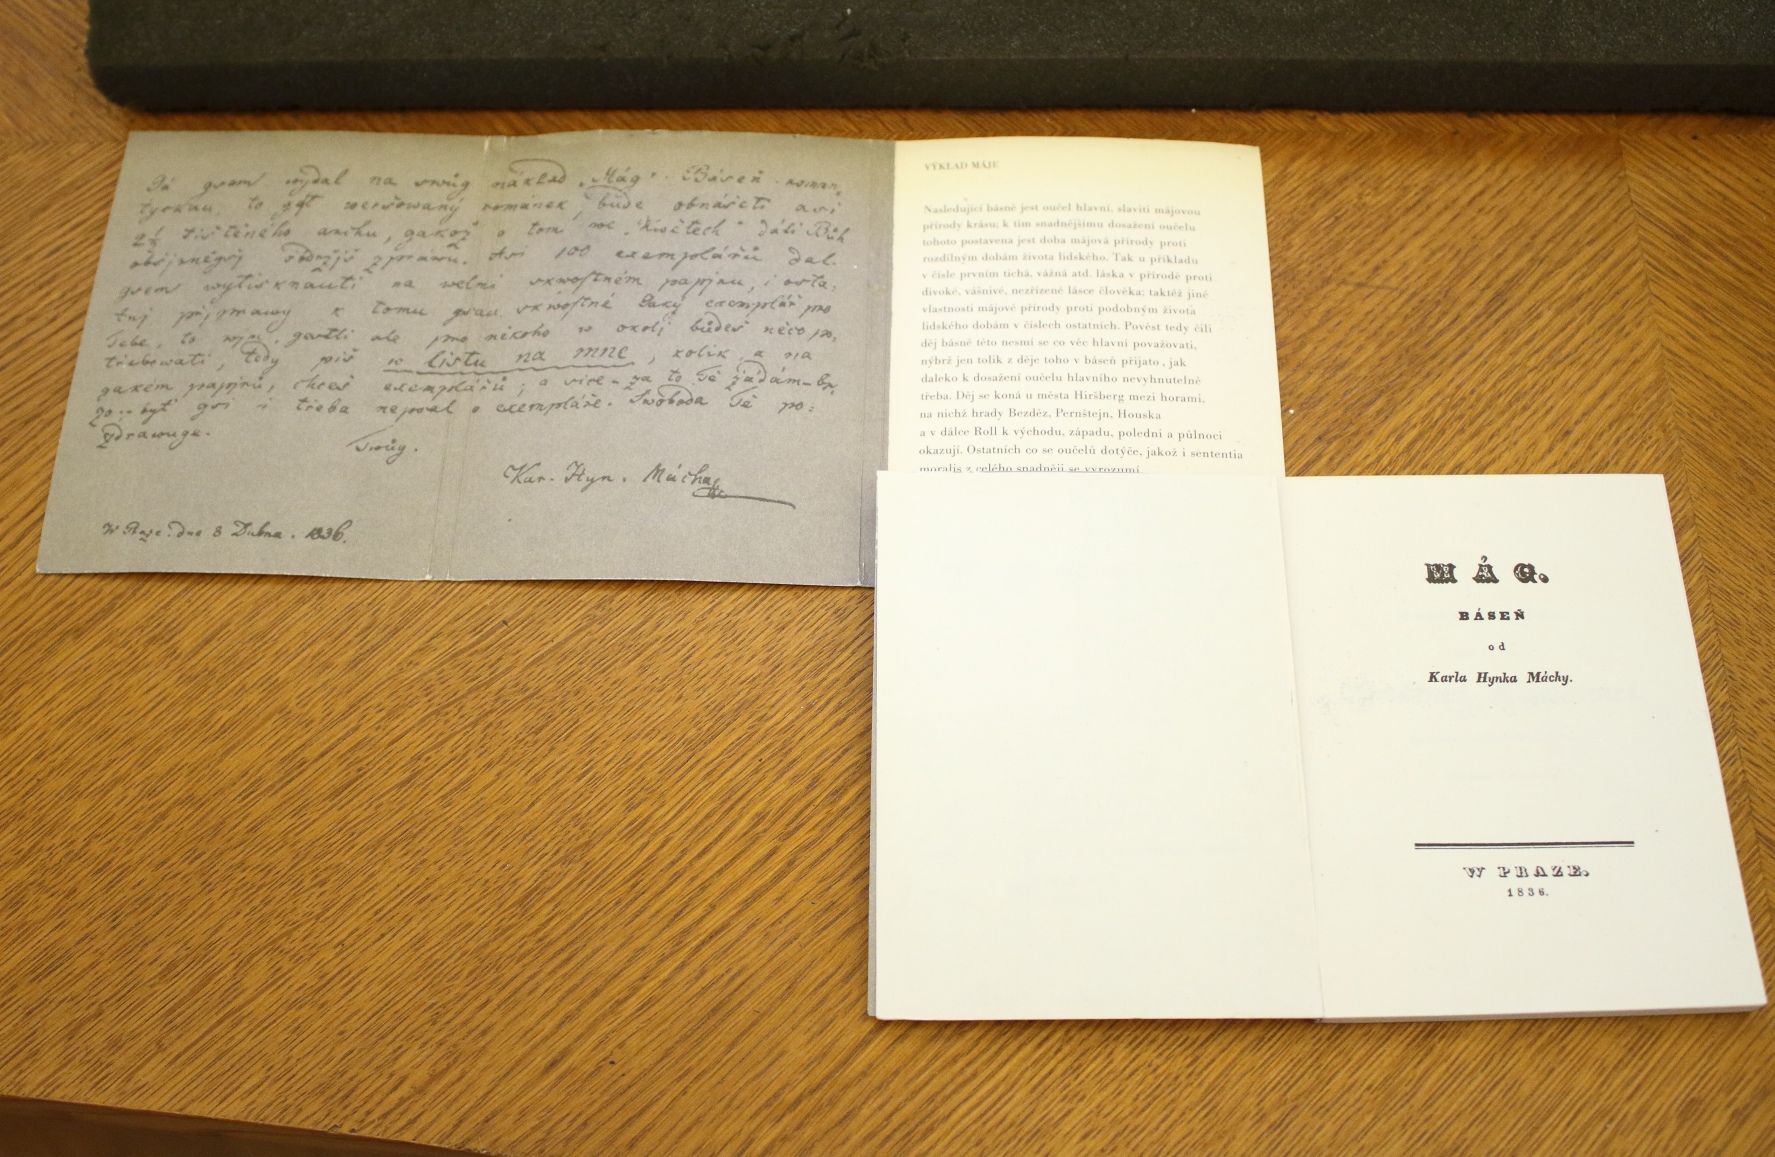 Já gsem wydal na swůg náklad „Mág“. Báseň roman,
tyckau; to gest weršowaný románek, bude obnášeti asi
2½ tištěného archu, gakož o tom we „Kwětech“ dáli Bůh
obssjrněgsj obdržjš zpráwu. Asi 100 exemplářů dal
gsem wytisknauti na welmi skwostném papjru, i osta,
tnj přjprawy k tomu gsau skwostné. Taký exemplář pro
Tebe, to mjm, gestli ale pro někoho w okolj budeš něco po,
třebowati, tedy piš w listu na mne, kolik a na
gakém papjru, chceš exemplářů; a více – za to Tě žádám – br,
zo. byť gsi i třeba nepsal o exempláře. Swoboda Tě po:
zdrawuge.
Twůg.
Kar. Hyn. Mácha
W Praze. dne 8 Dubna. 1836.
VÝKLAD MÁJE
Následující básně jest oučel hlavní, slaviti májovou
přírody krásu; k tím snadnějšímu dosažení oučelu
tohoto postavena jest doba májová přírody proti
rozdílným dobám života lidského. Tak u příkladu
v čísle prvním tichá, vážná atd. láska v přírodě proti
divoké, vášnivé, nezřízené lásce člověka; taktéž jiné
vlastnosti májové přírody proti podobným života
lidského dobám v číslech ostatních. Pověst tedy čili
děj básně této nesmí se co věc hlavní považovati,
nýbrž jen tolik z děje toho v báseň přijato, jak
daleko k dosažení oučelu hlavního nevyhnutelně
třeba. Děj se koná u města Hiršberg mezi horami,
na nichž hrady Bezděz, Pernštejn, Houska
a v dálce Roll k východu, západu, poledni a půlnoci
okazují. Ostatních co se oučelů dotýče, jakož i sententia
moralis z celého snadněji se vyrozumí.
MÁG.
BÁSEŇ
od
Karla Hynka Máchy.
W PRAZE.
1836.